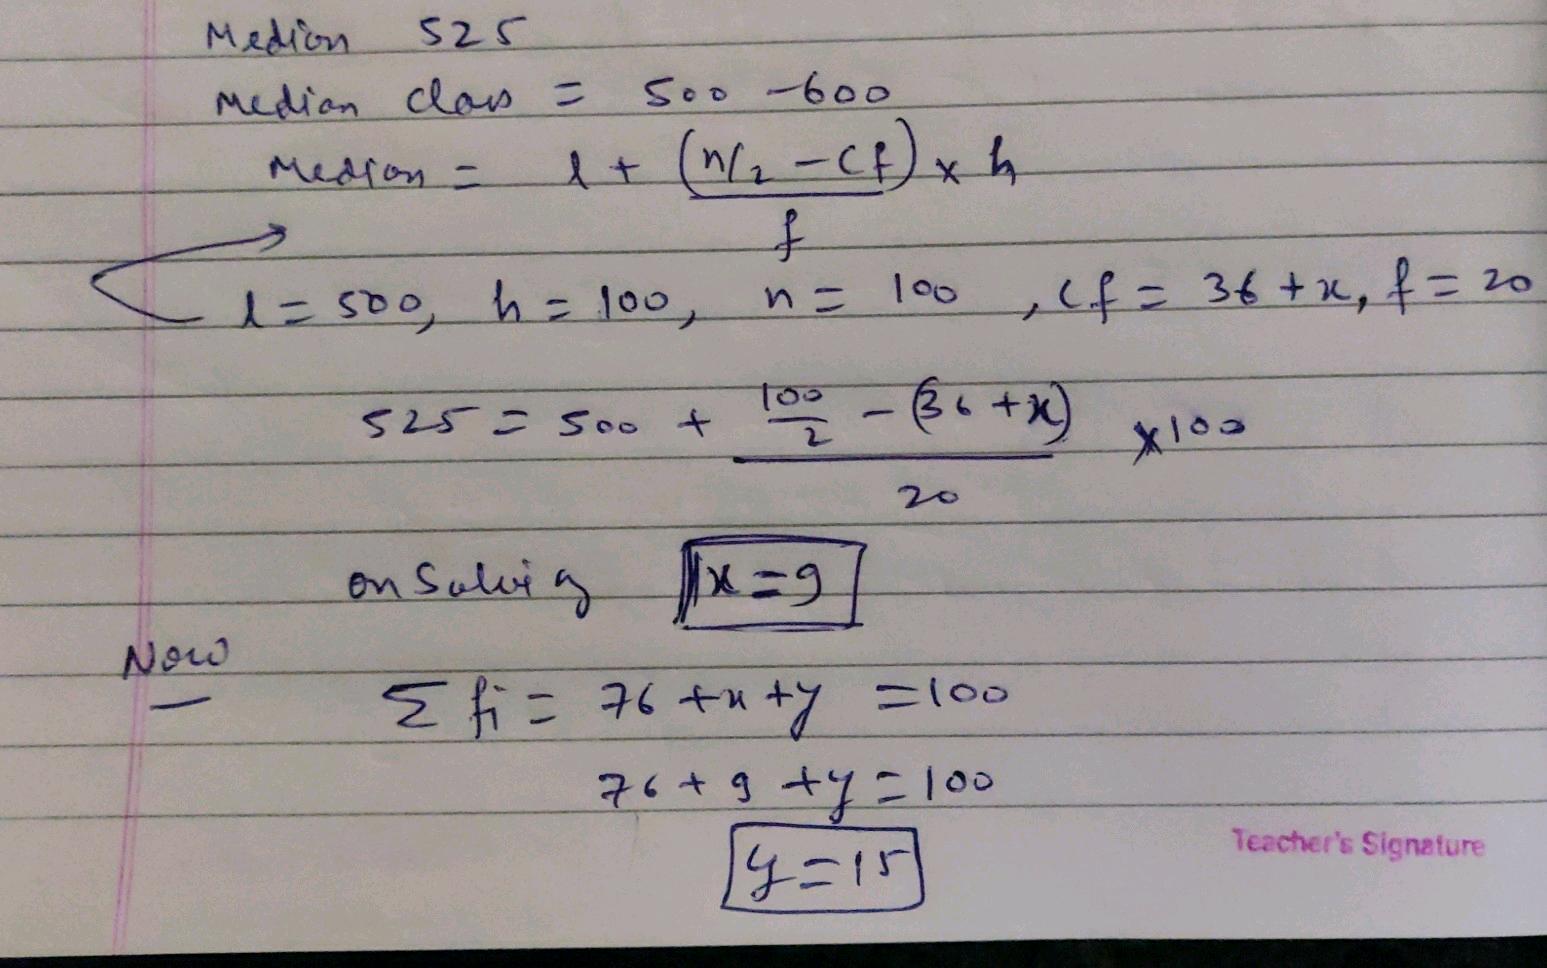 Median 525
Median class = 500 - 600
Median = l + (n/2 - cf) × h
f
l = 500, h = 100, n = 100 , cf = 36 + x, f = 20
525 = 500 + 100/2 - (36 + x) × 100
20
on Solvig x = 9
Now
Σ fi = 76 + x + y = 100
76 + 9 + y = 100
y = 15
Teacher's Signature